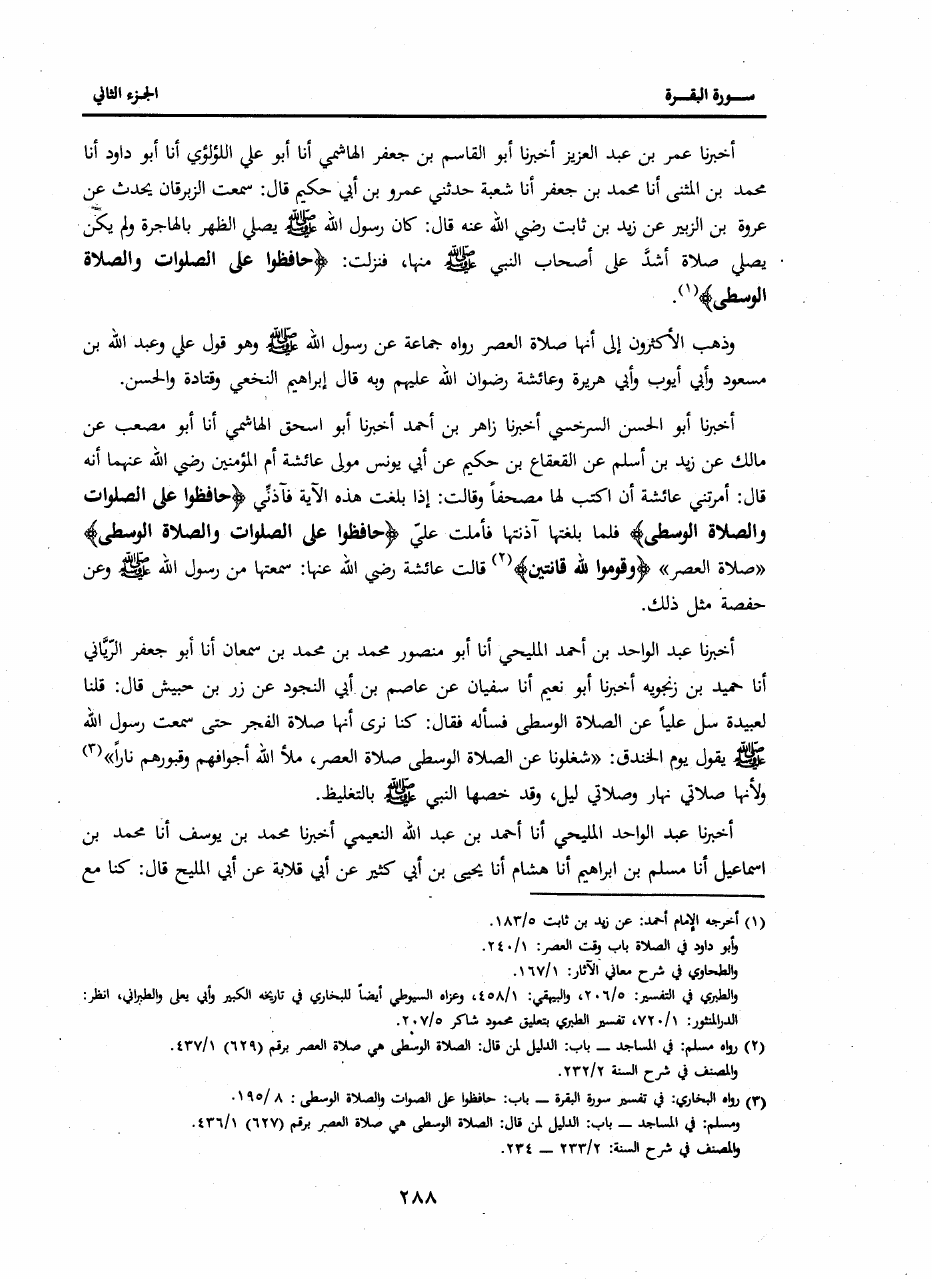 سورة البقرة
الجزء الثاني
أخبرنا عمر بن عبد العزيز أخبرنا أبو القاسم بن جعفر الهاشمي أنا أبو علي اللؤلؤي أنا أبو داود أنا
محمد بن المثنى أنا محمد بن جعفر أنا شعبة حدثني عمرو بن أبي حكيم قال: سمعت الزبرقان يحدث عن
عروة بن الزبير عن زيد بن ثابت رضي الله عنه قال: كان رسول الله ﷺ يصلي الظهر بالهاجرة ولم يكن
يصلي صلاة أشدَّ على أصحاب النبي ﷺ منها، فنزلت: ﴿حافظوا على الصلوات والصلاة
الوسطى﴾(١).
وذهب الأكثرون إلى أنها صلاة العصر رواه جماعة عن رسول الله ﷺ وهو قول علي وعبد الله بن
مسعود وأبي أيوب وأبي هريرة وعائشة رضوان الله عليهم وبه قال إبراهيم النخعي وقتادة والحسن.
أخبرنا أبو الحسن السرخسي أخبرنا زاهر بن أحمد أخبرنا أبو اسحق الهاشمي أنا أبو مصعب عن
مالك عن زيد بن أسلم عن القعقاع بن حكيم عن أبي يونس مولى عائشة أم المؤمنين رضي الله عنهما أنه
قال: أمرتني عائشة أن اكتب لها مصحفاً وقالت: إذا بلغت هذه الآية فآذنِّي ﴿حافظوا على الصلوات
والصلاة الوسطى﴾ فلما بلغتها آذنتها فأملت عليّ ﴿حافظوا على الصلوات والصلاة الوسطى﴾
«صلاة العصر» ﴿وقوموا لله قانتين﴾(٢) قالت عائشة رضي الله عنها: سمعتها من رسول الله ﷺ وعن
حفصة مثل ذلك.
أخبرنا عبد الواحد بن أحمد المليحي أنا أبو منصور محمد بن محمد بن سمعان أنا أبو جعفر الرّيَّاني
أنا حميد بن زنجويه أخبرنا أبو نعيم أنا سفيان عن عاصم بن أبي النجود عن زر بن حبيش قال: قلنا
لعبيدة سل علياً عن الصلاة الوسطى فسأله فقال: كنا نرى أنها صلاة الفجر حتى سمعت رسول الله
ﷺ يقول يوم الخندق: «شغلونا عن الصلاة الوسطى صلاة العصر، ملأ الله أجوافهم وقبورهم ناراً»(٣)
ولأنها صلاتي نهار وصلاتي ليل، وقد خصها النبي ﷺ بالتغليظ.
أخبرنا عبد الواحد المليحي أنا أحمد بن عبد الله النعيمي أخبرنا محمد بن يوسف أنا محمد بن
اسماعيل أنا مسلم بن ابراهيم أنا هشام أنا يحيى بن أبي كثير عن أبي قلابة عن أبي المليح قال: كنا مع
(١) أخرجه الإمام أحمد: عن زيد بن ثابت ١٨٣/٥.
وأبو داود في الصلاة باب وقت العصر: ٢٤٠/١.
والطحاوي في شرح معاني الآثار: ١٦٧/١.
والطبري في التفسير: ٢٠٦/٥، والبيهقي: ٤٥٨/١، وعزاه السيوطي أيضاً للبخاري في تاريخه الكبير وأبي يعلى والطبراني، انظر:
الدرالمنثور: ٧٢٠/١، تفسير الطبري بتعليق محمود شاكر ٢٠٧/٥.
(٢) رواه مسلم: في المساجد ــ باب: الدليل لمن قال: الصلاة الوسطى هي صلاة العصر برقم (٦٢٩) ٤٣٧/١.
والمصنف في شرح السنة ٢٣٢/٢.
(٣) رواه البخاري: في تفسير سورة البقرة ــ باب: حافظوا على الصوات والصلاة الوسطى : ١٩٥/٨.
ومسلم: في المساجد ــ باب: الدليل لمن قال: الصلاة الوسطى هي صلاة العصر برقم (٦٢٧) ٤٣٦/١.
والمصنف في شرح السنة: ٢٣٣/٢ ــ ٢٣٤.
٢٨٨